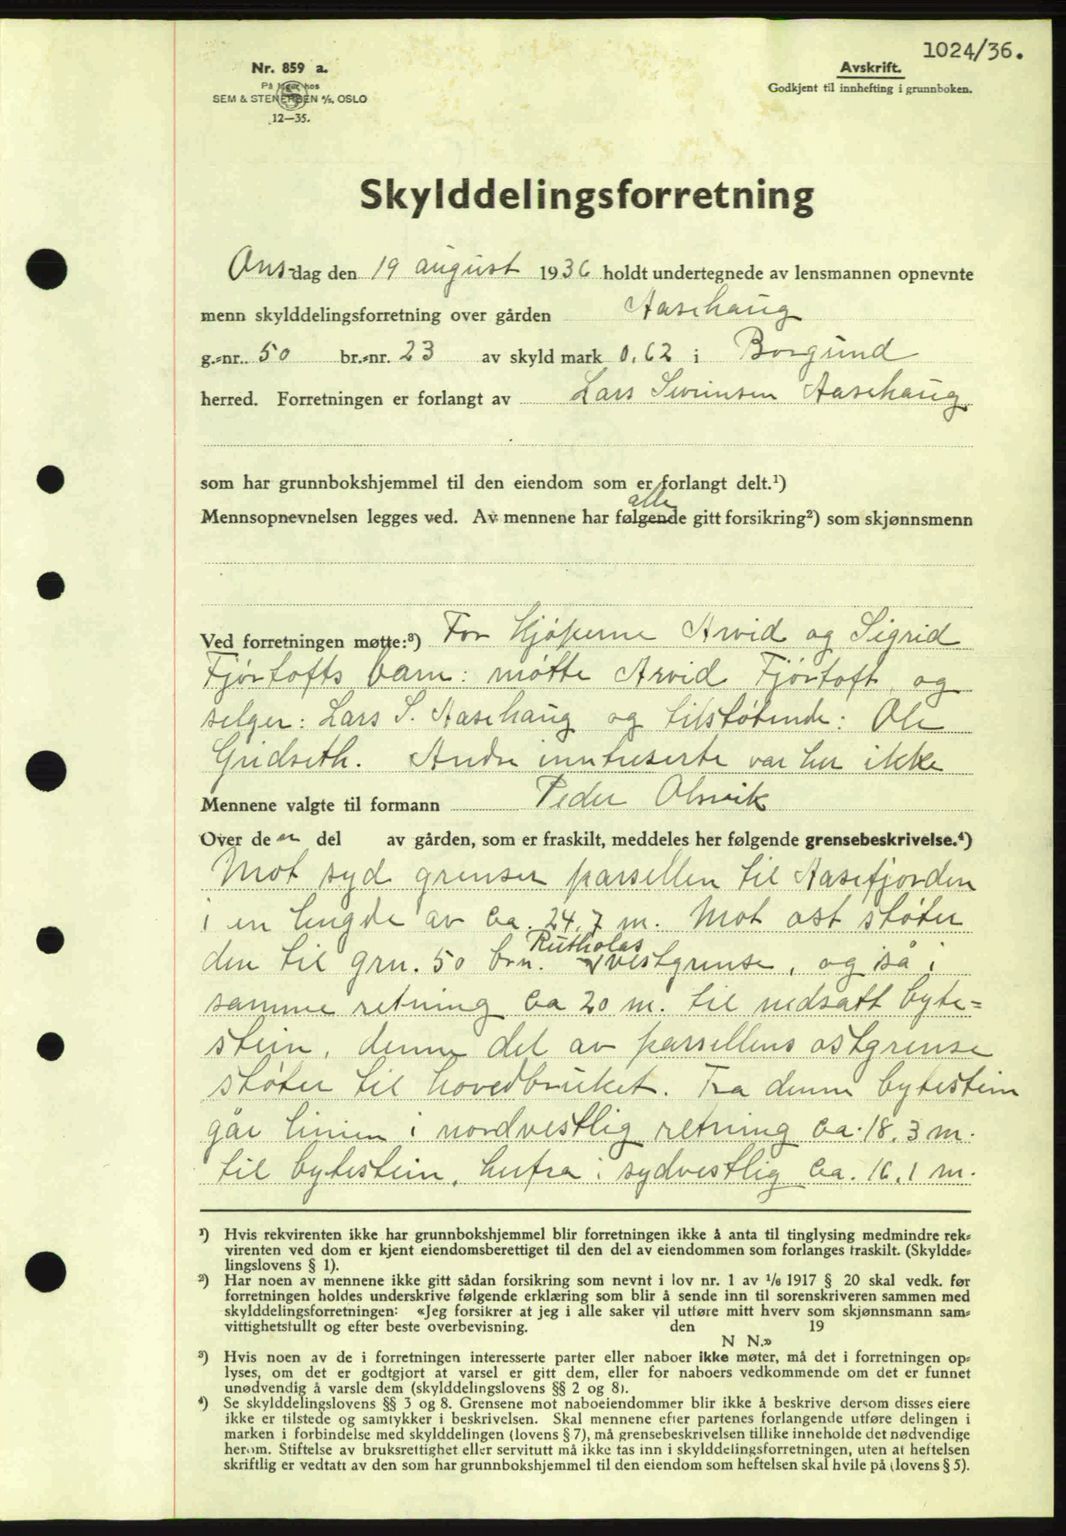 1024/36.
Nr. 859 a.
På lager hos
SEM & STENERSEN A/S, OSLO
12—35.
Avskrift.
Godkjent til innhefting i grunnboken.
Skylddelingsforretning
Ons-dag den 19 august 1936 holdt undertegnede av lensmannen opnevnte
menn skylddelingsforretning over gården Aasehaug
g.-nr. 50 br.-nr. 23 av skyld mark 0,62 i Borgund
herred. Forretningen er forlangt av Lars Sveinsen Aasehaug.
som har grunnbokshjemmel til den eiendom som er forlangt delt.¹)
alle
Mennsopnevnelsen legges ved. Av mennene har følgende gitt forsikring²) som skjønnsmenn
Ved forretningen møtte:³) For kjøperne Arvid og Sigrid
Fjørtofts barn: møtte Arvid Fjørtoft, og
selger: Lars S. Aasehaug og tilstøtende: Ole
Gridseth. Andre intreserte var her ikke
Mennene valgte til formann Peder Olsvik
Over den en del av gården, som er fraskilt, meddeles her følgende grensebeskrivelse.⁴)
Mot syd grenser parsellen til Aasefjorden
i en lengde av ca. 24,7 m. Mot ost støter
Rutholas
den til grn. 50 brn. √ vestgrense, og så i
samme retning ca 20 m. til nedsatt byte=
stein, denne del av parsellens ostgrense
støter til hovedbruket. Fra denne bytestein
går linien i nordvestlig retning ca. 18,3 m.
til bytestein, herfra i sydvestlig ca. 16,1 m.
¹) Hvis rekvirenten ikke har grunnbokshjemmel blir forretningen ikke å anta til tinglysing medmindre rek-
virenten ved dom er kjent eiendomsberettiget til den del av eiendommen som forlanges fraskilt. (Skyldde-
lingslovens § 1).
²) Har noen av mennene ikke gitt sådan forsikring som nevnt i lov nr. 1 av 1/6 1917 § 20 skal vedk. før
forretningen holdes underskrive følgende erklæring som blir å sende inn til sorenskriveren sammen med
skylddelingsforretningen: «Jeg forsikrer at jeg i alle saker vil utføre mitt hverv som skjønnsmann sam-
vittighetsfullt og efter beste overbevisning. den 19
N N.»
³) Hvis noen av de i forretningen interesserte parter eller naboer ikke møter, må det i forretningen op-
lyses, om det er godtgjort at varsel er gitt dem, eller for naboers vedkommende om det er funnet
unødvendig å varsle dem (skylddelingslovens §§ 2 og 8).
⁴) Se skylddelingslovens §§ 3 og 8. Grensene mot naboeiendommer blir ikke å beskrive dersom disses eiere
ikke er tilstede og samtykker i beskrivelsen. Skal mennene efter partenes forlangende utføre delingen i
marken i forbindelse med skylddelingen (lovens § 7), må grensebeskrivelsen tillike inneholde det nødvendige
herom. Stiftelse av bruksrettighet eller servitutt må ikke tas inn i skylddelingsforretningen, uten at heftelsen
skriftlig er vedtatt av den som har grunnbokshjemmel til den eiendom som heftelsen skal hvile på (lovens § 5).